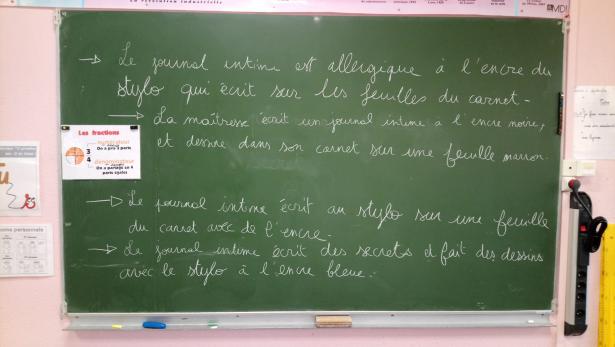 la révolution industrielle
MDI
→ Le journal intime est allergique à l'encre du
stylo qui écrit sur les feuilles du carnet.
→ La maîtresse écrit un journal intime à l'encre noire,
et dessine dans son carnet sur une feuille marron
Les fractions
3
4
numérateur
On a pris 3 parts
dénominateur
On a partagé en 4
parts égales
→ Le journal intime écrit au stylo sur une feuille
du carnet avec de l'encre.
→ Le journal intime écrit des secrets et fait des dessins
avec le stylo à l'encre bleue.